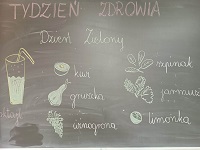 TYDZIEŃ ZDROWIA
Dzień Zielony
kiwi szpinak
gruszka jarmuż
winogrona limonka